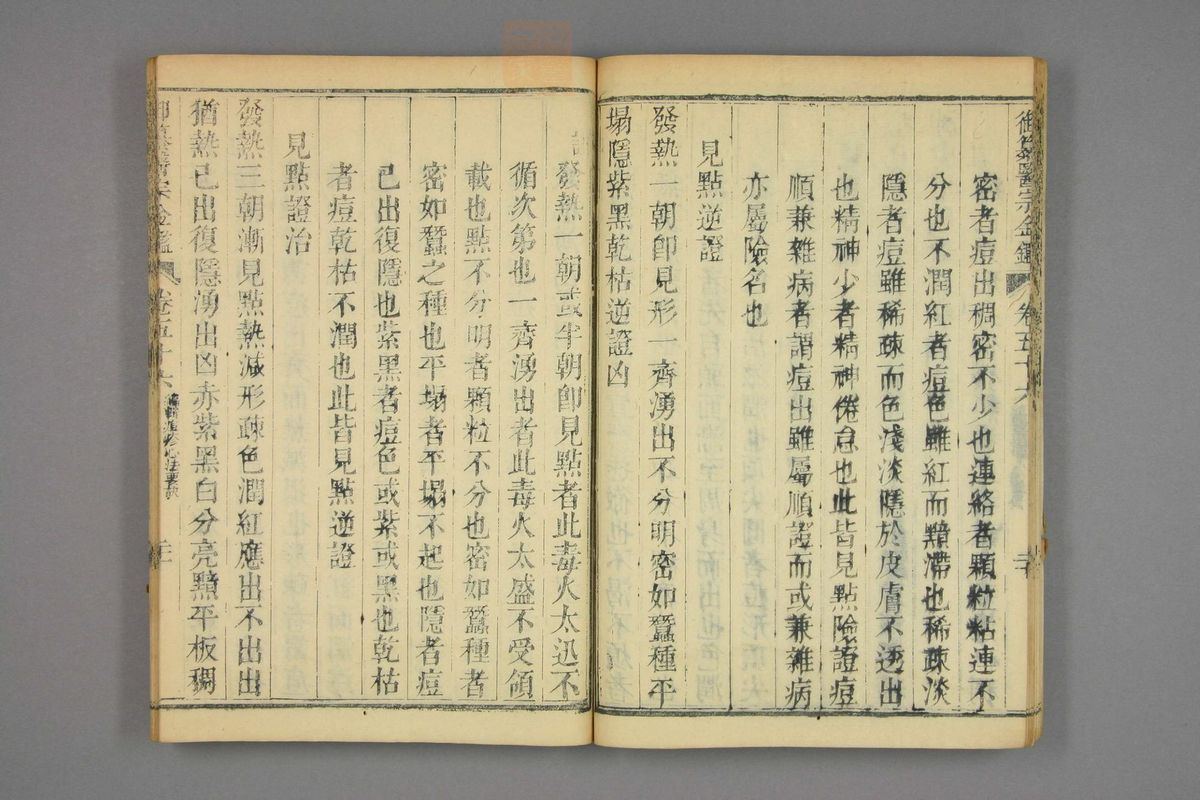 御纂醫宗金鑑 卷五十六
密者痘出稠密不少也連絡者顆粒粘連不
分也不潤紅者痘色雖紅而黯滯也稀疎淡
隱者痘雖稀疎而色淺淡隱於皮膚不透出
也精神少者精神倦怠也此皆見點險證痘
順兼雜病者謂痘出雖屬順證而或兼雜病
亦屬險名也
見點逆證
發熱一朝卽見形一齊湧出不分明密如蠶種平
塌隱紫黑乾枯逆證凶
註發熱一朝或半朝卽見點者此毒火太迅不
循次第也一齊湧出者此毒火太盛不受領
載也點不分明者顆粒不分也密如蠶種者
密如蠶之種也平塌者平塌不起也隱者痘
已出復隱也紫黑者痘色或紫或黑也乾枯
者痘乾枯不潤也此皆見點逆證
見點證治
發熱三朝漸見點熱減形疎色潤紅應出不出出
猶熱已出復隱湧出凶赤紫黑白分亮黯平板稠
御纂醫宗金鑑 卷五十六